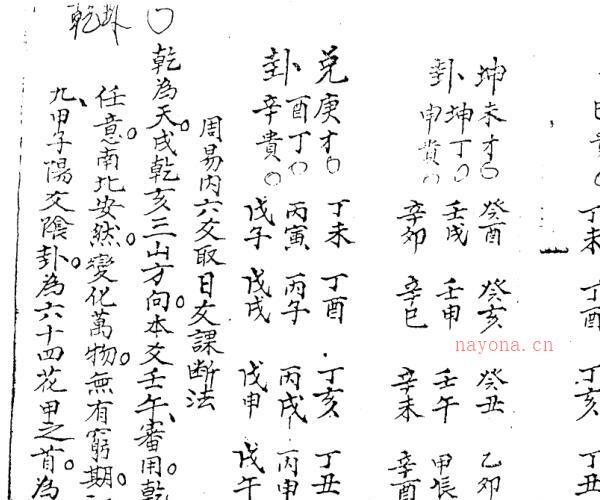 貴○ 丁未 丁酉 丁亥 丁丑
坤未才○ 癸酉 癸亥 癸丑 乙卯
卦坤丁○ 壬戌 壬申 壬午 甲辰
申貴○ 辛卯 辛巳 辛未 辛酉
兌庚才○ 丁未 丁酉 丁亥 丁丑
卦酉丁○ 丙寅 丙子 丙戌 丙申
辛貴○ 戊子 戊戌 戊申 戊午
周易内六爻取日爻課斷法
○
乾卦
乾為天。戌乾亥三山方向。本爻壬午、審用。乾
任意。南北安然。變化萬物。無有窮期。
九、甲子陽爻陰卦。為六十四花甲之首。為
nayona.cn